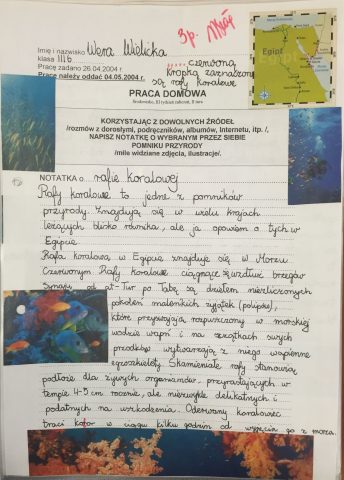 3p.
Imię i nazwisko Wera Wielicka
klasa III b
Pracę zadano 26.04.2004 r.
Pracę należy oddać 04.05.2004 r.
czerwoną
Kropką zaznaczone
są rafy koralowe
Egipt
PRACA DOMOWA
KORZYSTAJĄC Z DOWOLNYCH ŹRÓDEŁ
/rozmów z dorosłymi, podręczników, albumów, Internetu, itp. /,
NAPISZ NOTATKĘ O WYBRANYM PRZEZ SIEBIE
POMNIKU PRZYRODY
/mile widziane zdjęcia, ilustracje/.
NOTATKA o rafie koralowej
Rafy koralowe to jedne z pomników
przyrody. Znajdują się w wielu krajach
leżących blisko równika, ale ja opowiem o tych w
Egipcie.
Rafa koralowa w Egipcie znajduje się w Morzu
Czerwonym. Rafy koralowe ciągnące się wzdłuż brzegów
Synaju od at-Tur po Tabę są dziełem niezliczonych
pokoleń maleńkich żyjątek (polipów),
które przyswajają rozpuszczony w morskiej
wodzie wapń i na szczątkach swych
przodków wytwarzają z niego wapienne
egzoszkielety. Skamieniałe rafy stanowią
podłoże dla żywych organizmów, przyrastających w
tempie 4-5 cm rocznie, ale niezwykle delikatnych i
podatnych na uszkodzenia. Oderwany koralowiec
traci kolor w ciągu kilku godzin od wyjęcia go z morza.